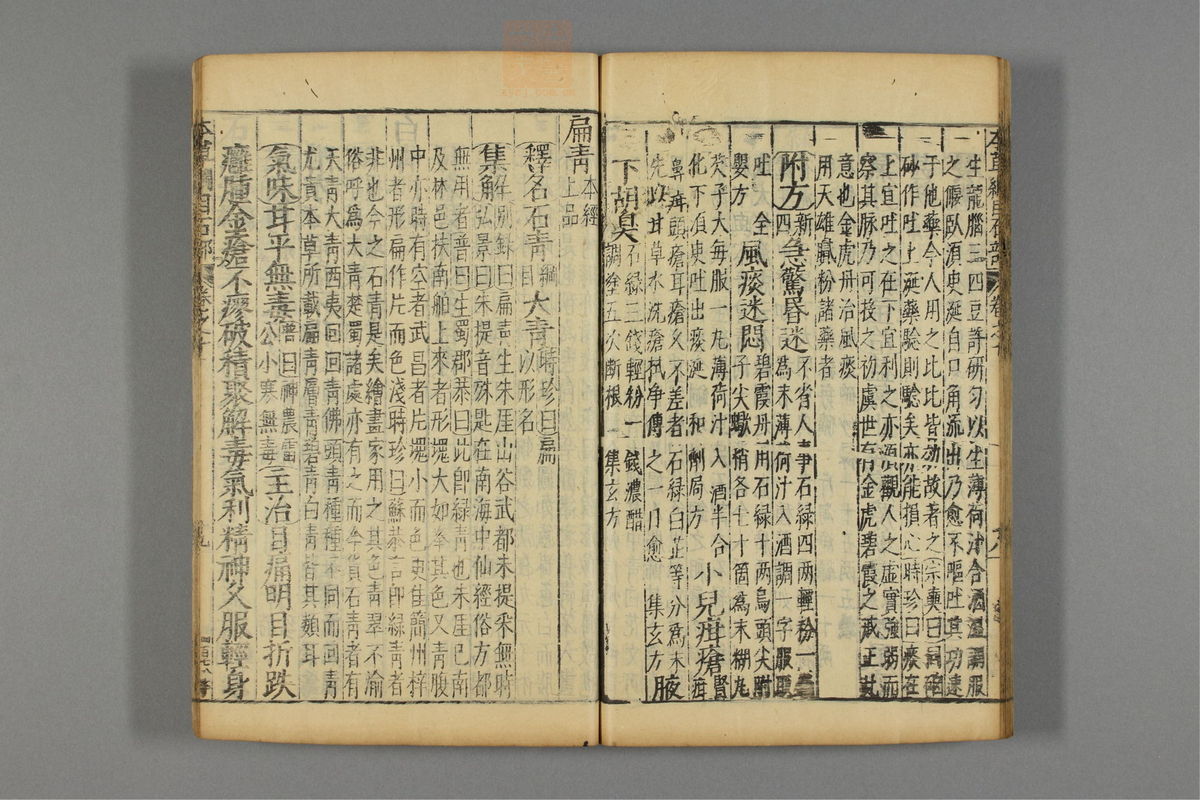 本草綱目石部 卷之十 十八
生龍腦三四豆許研勻以生薄荷汁合酒溫調服
之偃臥須臾涎自口角流出乃愈不嘔吐其功速
于他藥今人用之比比皆効故著之宗奭曰同硇
砂作吐上涎藥驗則驗矣亦能損心時珍曰痰在
上宜吐之在下宜利之亦須觀人之虛實強弱而
察其脉乃可投之初虞世有金虎碧霞之戒正此
意也金虎丹治風痰
用天雄膩粉諸藥者
附方新四急驚昏迷不省人事石綠四兩輕粉一
為末薄荷汁入酒調一字服取
吐 全嬰方 風痰迷悶碧霞丹用石綠十兩烏頭尖附
子尖蠍梢各七十箇為末糊丸
芡子大每服一丸薄荷汁入酒半合
化下須臾吐出痰涎 和劑局方 小兒疳瘡腎疳
鼻疳頭瘡耳瘡久不差者石綠白芷等分為末
先以甘草水洗瘡拭净傅之一日愈 集玄方 腋
下胡臭石綠三錢輕粉一錢濃醋
調塗五次斷根 集玄方
扁青本經上品
釋名石青綱目大青時珍曰扁以形名
集解別錄曰扁青生朱厓山谷武都朱提采無時
弘景曰朱提音殊匙在南海中仙經俗方都
無用者普曰生蜀郡恭曰此即綠青也朱厓巴南
及林邑扶南舶上來者形塊大如拳其色又青腹
中亦時有空者武昌者片塊小而色更佳簡州梓
州者形扁作片而色淺時珍曰蘇恭言即綠青者
非也今之石青是矣繪畫家用之其色青翠不渝
俗呼為大青楚蜀諸處亦有之而今貨石青者有
天青大青西夷回回青佛頭青種種不同而回青
尤貴本草所載扁青層青碧青白青皆其類耳
氣味甘平無毒普曰神農雷公小寒無毒主治目痛明目折跌
癰腫金瘡不瘳破積聚解毒氣利精神久服輕身
本草綱目石部 卷之十 十九